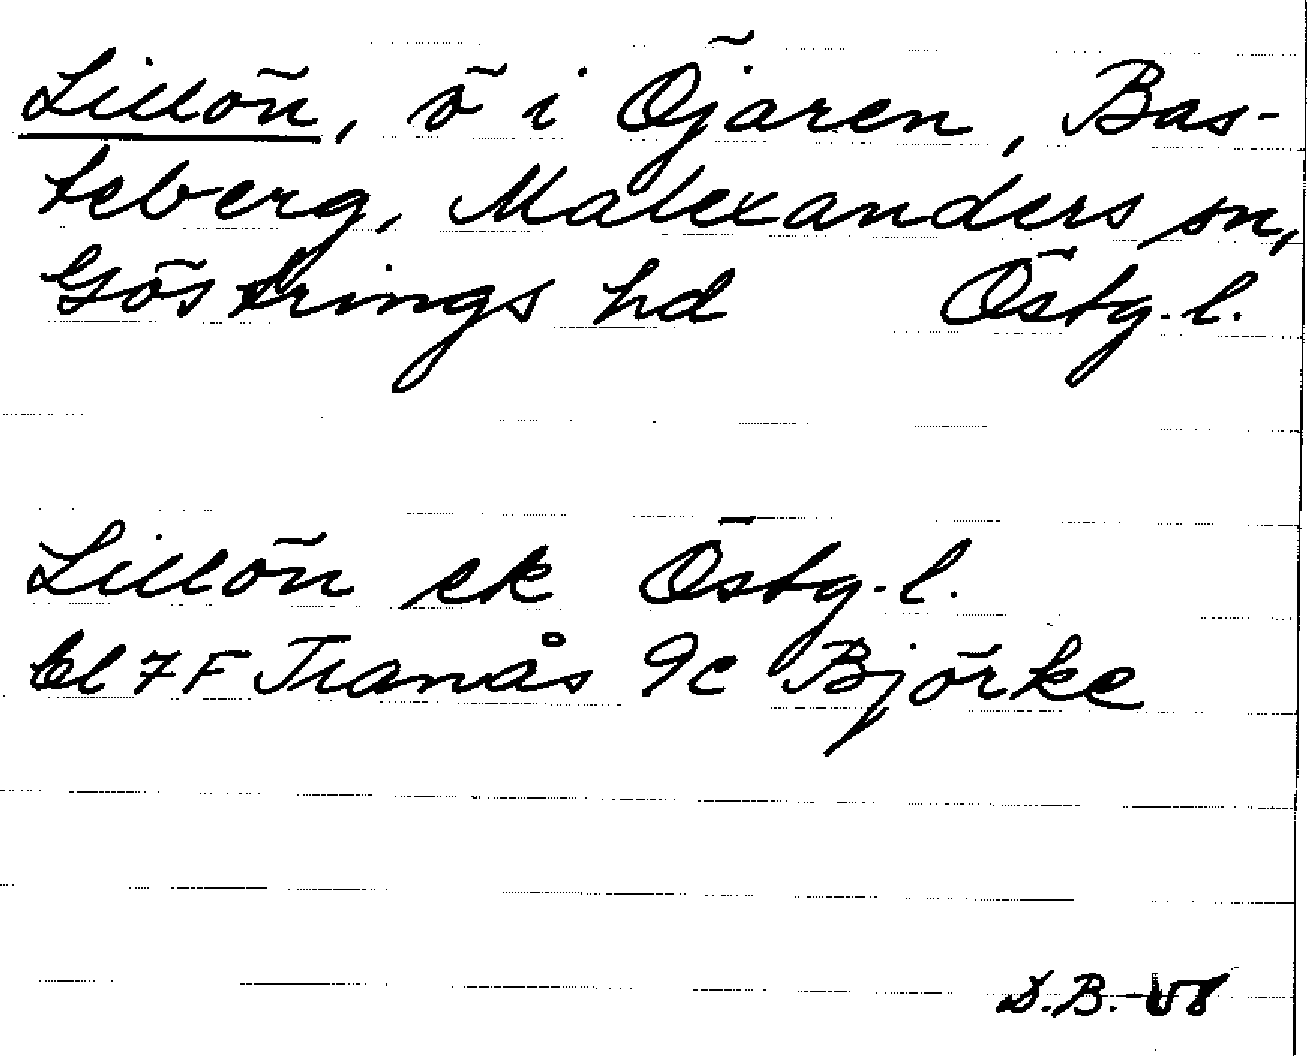 Lillön, ö i Öjaren, Bas-
teberg, Malexanders sn,
Göstrings hd Östg.l.
Lillön ek Östg.l.
bl 7F Tranås 9c Björke
D.B.-58